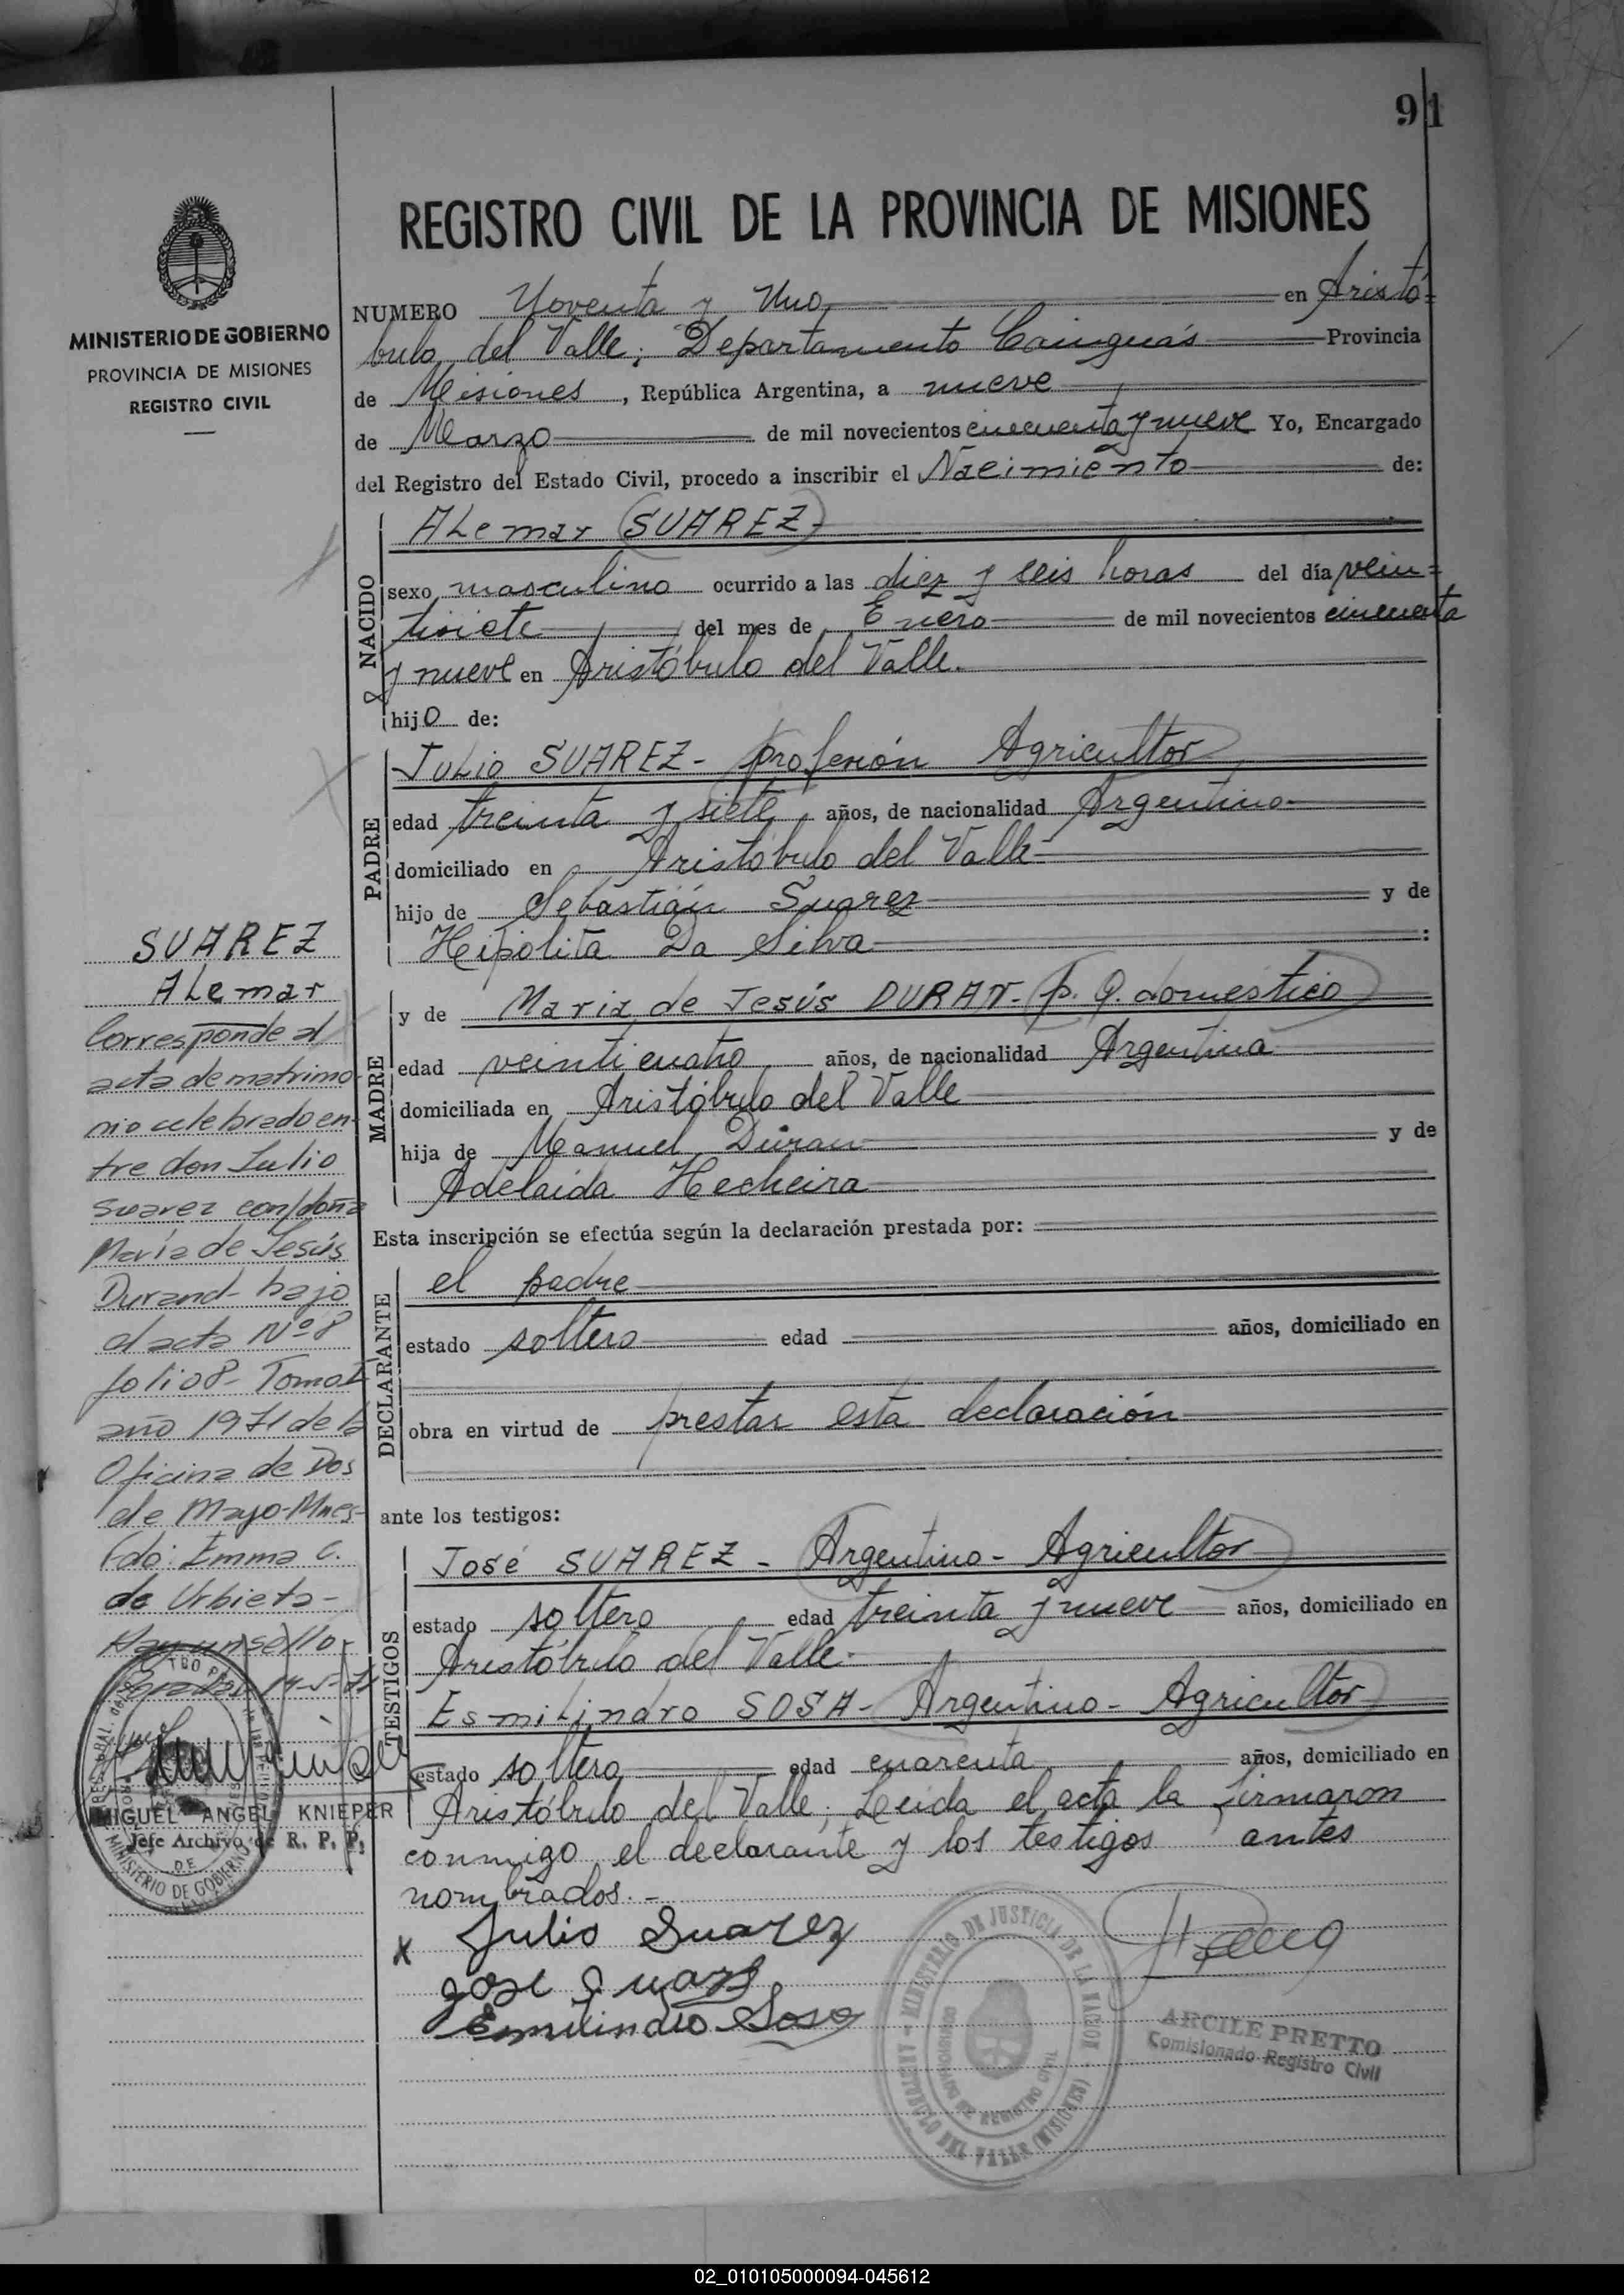 91
REGISTRO CIVIL DE LA PROVINCIA DE MISIONES
MINISTERIO DE GOBIERNO
PROVINCIA DE MISIONES
REGISTRO CIVIL
NUMERO Noventa y Uno en Aristó-
bulo del Valle, Departamento Cainguás Provincia
de Misiones, República Argentina, a nueve
de Marzo de mil novecientos cincuenta y nueve Yo, Encargado
del Registro del Estado Civil, procedo a inscribir el Nacimiento de:
NACIDO
ALemar (SUAREZ)
sexo masculino ocurrido a las diez y seis horas del día vein=
tisiete del mes de Enero de mil novecientos cincuenta
y nueve en Aristóbulo del Valle.
hijo de:
PADRE
Julio SUAREZ - profesión Agricultor
edad treinta y siete años, de nacionalidad Argentino
domiciliado en Aristóbulo del Valle
hijo de Sebastián Suarez y de
Hipólita Da Silva :
MADRE
y de Maria de Jesús DURAN - p. Q. domestico
edad veinticuatro años, de nacionalidad Argentina
domiciliada en Aristóbulo del Valle
hija de Manuel Duran y de
Adelaida Hecheira
Esta inscripción se efectúa según la declaración prestada por:
DECLARANTE
el padre
estado soltero edad años, domiciliado en
obra en virtud de prestar esta declaración
ante los testigos:
TESTIGOS
José SUAREZ - Argentino - Agricultor
estado soltero edad treinta y nueve años, domiciliado en
Aristóbulo del Valle.
Esmilindro SOSA - Argentino - Agricultor
estado soltero edad cuarenta años, domiciliado en
Aristóbulo del Valle; Leida el acta la firmaron
conmigo el declarante y los testigos antes
nombrados. -
x Julio Suarez
Jose Suarez
Esmilindro Sosa
MINISTERIO DE JUSTICIA DE LA NACION
ARISTOBULO DEL VALLE (MISIONES)
ARCILE PRETTO
Comisionado Registro Civil
SUAREZ
ALemar
Corresponde al
acta de matrimo-
nio celebrado en-
tre don Julio
Suarez con doña
María de Jesús
Durand - bajo
el acta Nº 8
folio 8 - Tomo I
año 1971 de la
Oficina de Dos
de Mayo - Mnes -
fdo: Emma C.
de Urbieta -
Hay un sello -
MIGUEL ANGEL KNIEPER
Jefe Archivo de R. P. P.
MINISTERIO DE GOBIERNO
02_010105000094-045612